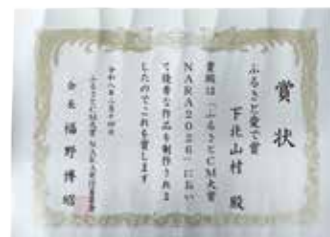 賞状
ふるさと愛で賞
下北山村 殿
貴殿は「ふるさとCM大賞
NARA2026」におい
て優秀な作品を制作されま
したのでこれを賞します
令和八年二月十四日
ふるさとCM大賞 NARA実行委員会
会長 福野博昭